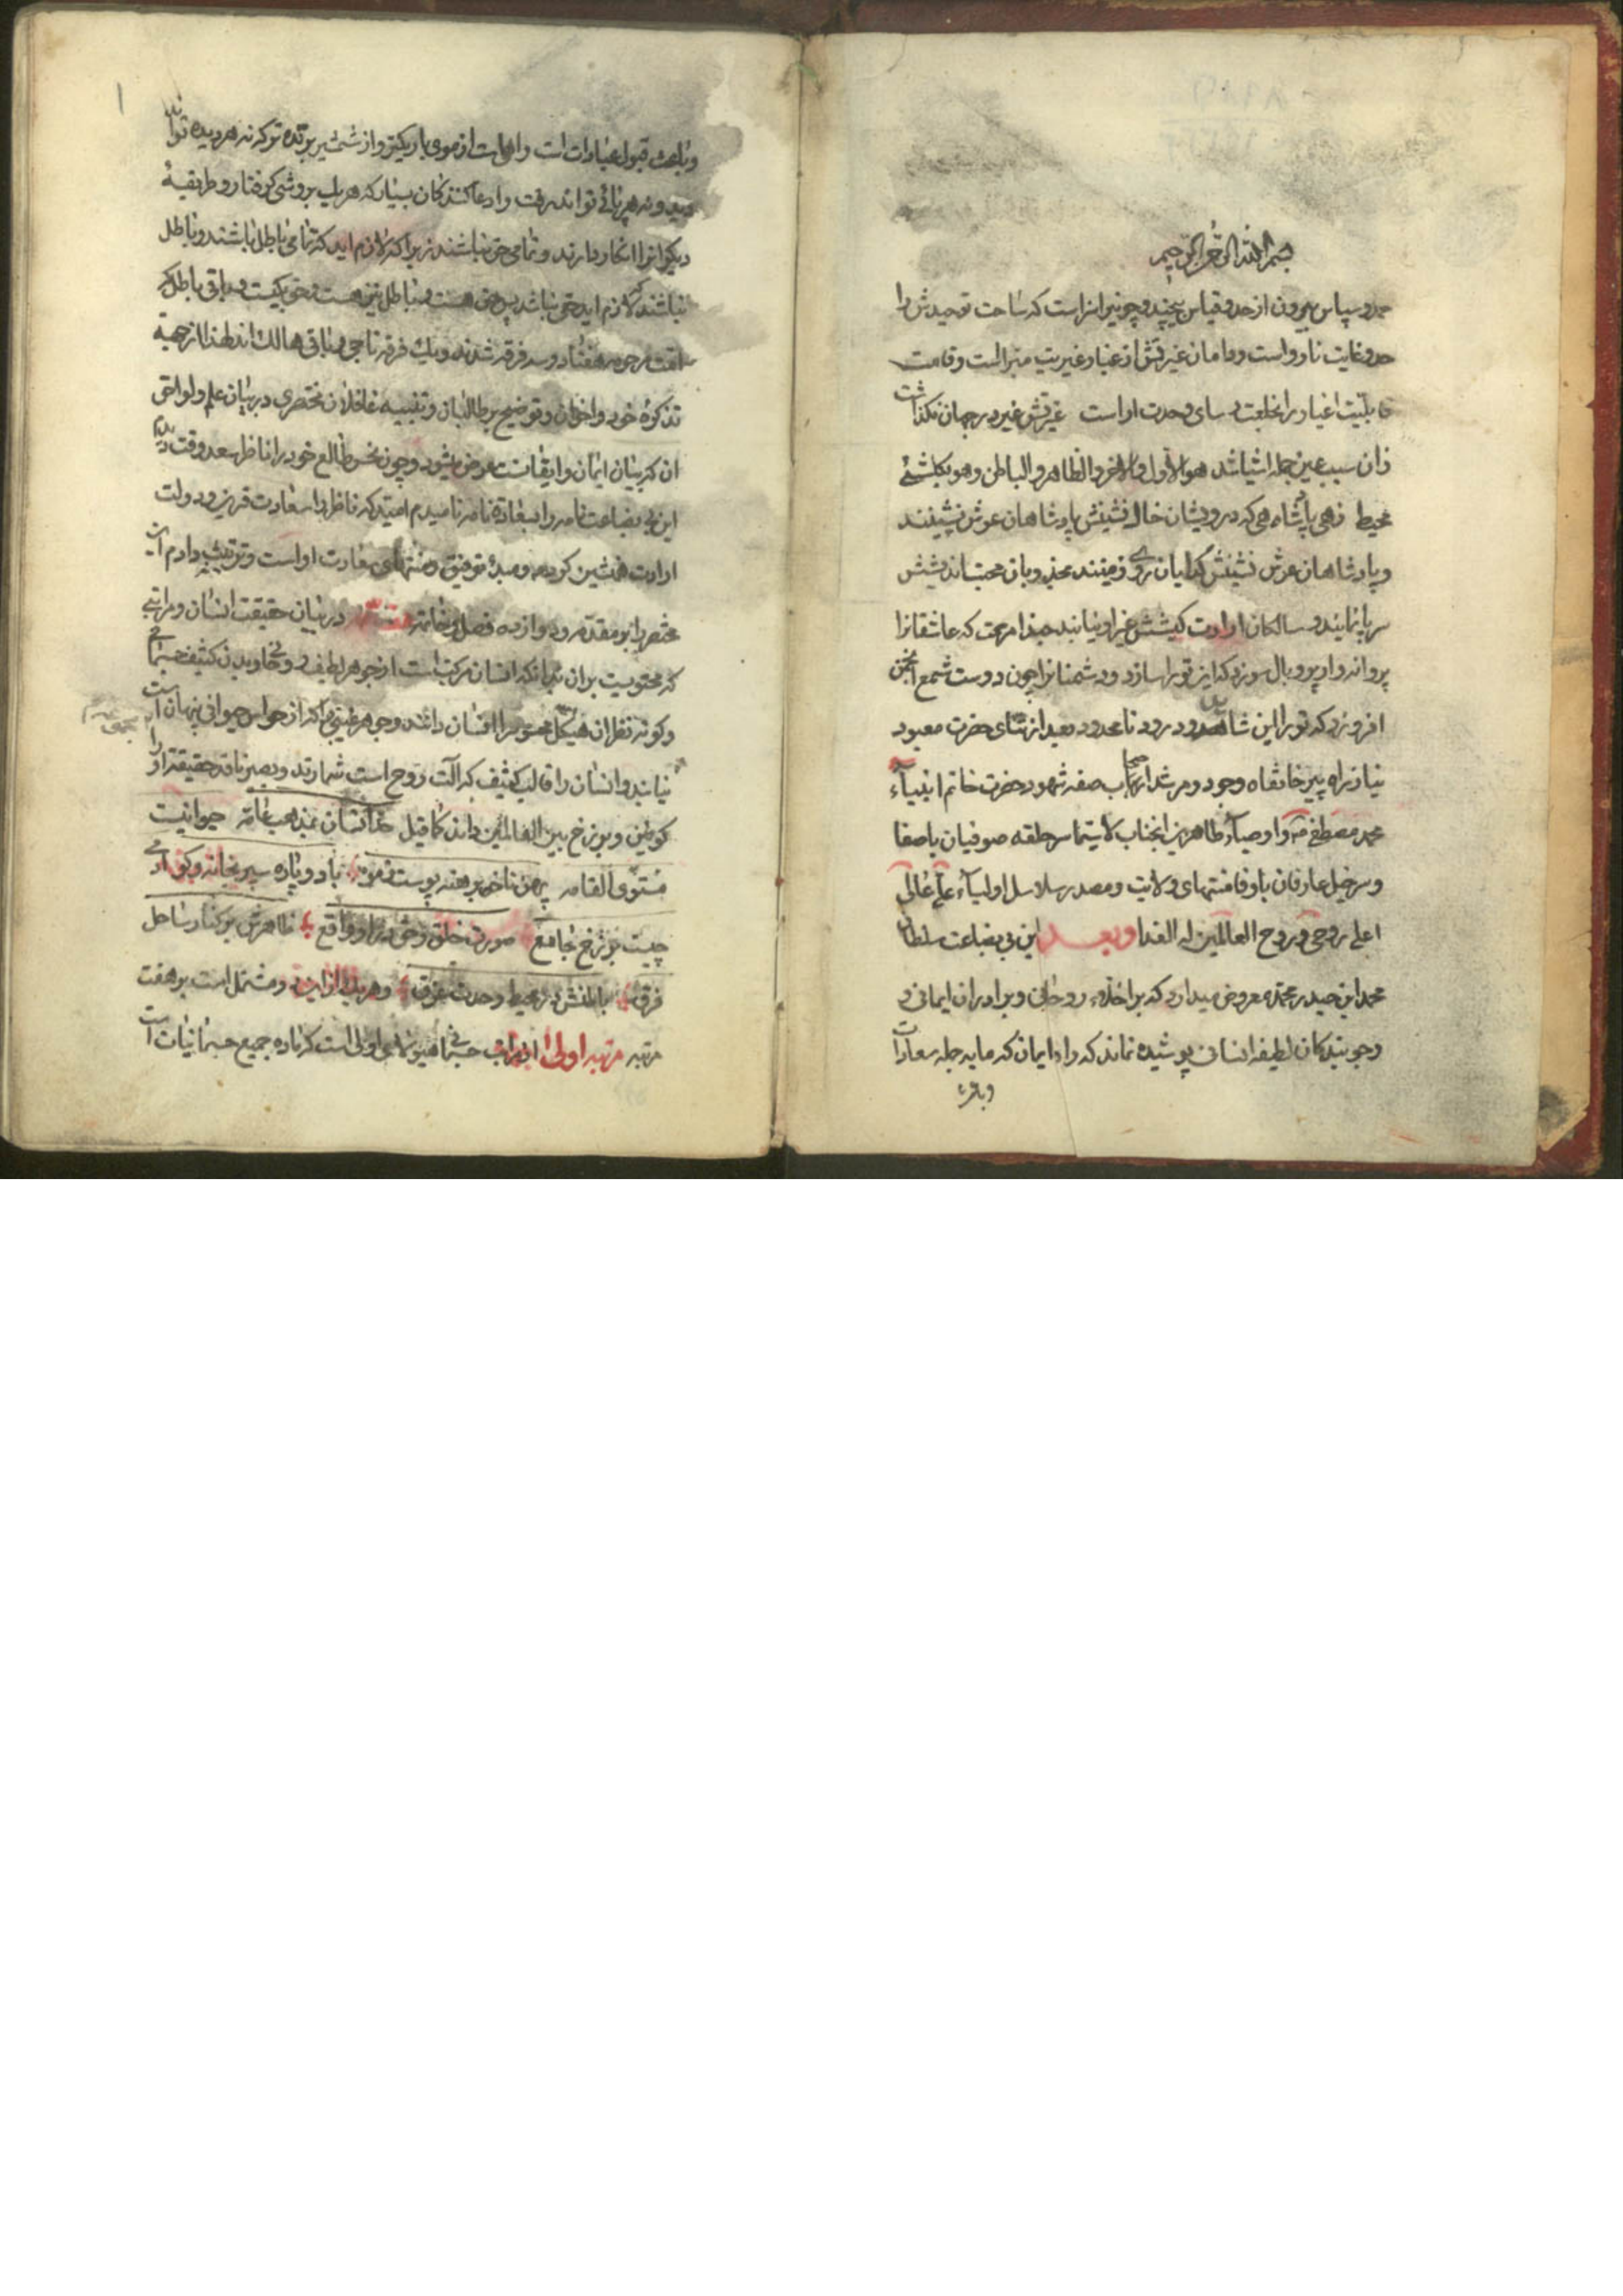 بسم الله الرحمن الرحیم
حمد و سپاس بیرون از حد و قیاس بیچند و چونیرا سزاست که ساحت توحیدش را
حد و غایت نارواست و دامان غیرتش از غبار غیریت مبراست و قامت
قابلیت اغیار را بخلعت رسای وحدت اراست غیرتش غیر در جهان نگذاشت
زان سبب عین جمله اشیا شد هو الاول و الاخر و الظاهر و الباطن و هو بکل شئ
محیط زهی پادشاهی که درویشان خاک نشینش پادشاهان عرش نشینند
و پادشاهان عرش نشینش گدایان روی زمینند مجذوبان محبتاند
سر پا نمایند و سالکان ارادت کیشش غیر او نیابند حبذا مرحمت که عاشقانرا
پروانه وار پر و بال سوزد که این تو را سازد و دشمنانرا چون دوست شمع انجمن
افروزد که تو را این شاید و درود نامعدود بعد از ثنای حضرت معبود
نیاز راه پیر خانقاه وجود و مرشد اصحاب صفه شهود حضرت خاتم انبیآء
محمد مصطفی ص و اوصیآء طاهرین انجناب لاسیما سر حلقه صوفیان باصفا
و سر خیل عارفان باوفا منتهای ولایت و مصدر سلاسل اولیآء علی عالی
اعلی روحی و روح العالمین له الفدا و بعد این بی بضاعت سلطان
محمد ابن حیدر محمد معروض میدارد که بر اخلاء روحانی و برادران ایمانی و
جویندکان لطیفه انسانی پوشیده نماند که راه ایمان که مایه جمله سعادات
و باعث
و باعث قبول عبادات است راهی است از موی باریکتر و از شمشیر برنده تر که نه هر دیده تواند
دید و نه هر پائی تواند رفت و ادعا کنندکان بسیار که هر یک بروشی گرفتار و طریقه
دیگرانرا انکار دارند و تمامی حق نباشند زیرا که لازم اید که تمامی باطل باشند و باطل
نباشند که لازم اید حق نباشد پس حق هست و باطل نیز هست و حق یکیست و باقی باطل که
امت مرحومه هفتاد و سه فرقه شدند و یک فرقه ناجی و باقی هالک اند لهذا از جهة
تذکره خود و اخوان و توضیح بر طالبان و تنبیه غافلان مختصری در بیان علم و لواحق
ان که بیان ایمان و ایقانست عرض میشود و چون نحس طالع خود را ناظر سعد وقت دیدم
این بی بضاعت نامه را بسعادة نامه نامیدم امید که ناظر را سعادت قرین و دولت
ارادت همنشین کردد و مبدء توفیق و منتهای سعادت اوست و ترتیب دادم این
مختصر را بر مقدمه و دوازده فصل و خاتمه مقدمه در بیان حقیقت انسان و مراتبی
که محتویست بران بدانکه انسان مرکب است از جوهر لطیف روحانی و بدن کثیف جسمانی
و کوته نظران هیکل محسوس را انسان دانند و جوهر غیبی را که از حواس حیوانی پنهان است
نیابند و انسان را قالب کثیف که الت روح است شمارند و بصیر ناقد حقیقة او را
کونین و برزخ بین العالمین داند کما قیل حد انسان بمذهب عامه حیوانیست
مستوی القامه پهن ناخن برهنه پوست ز موی بدو پا ره سپر بخانه و کوی ادمی
چیست برزخ جامع صورت خلق و حق در او واقع ظاهرش بر کنار ساحل
فرق باطنش در محیط وحدت غرق و هر یک از این دو مشتمل است بر هفت
مرتبه مرتبه اولی از مراتب جسمانی هیولای اولی است که ماده جمیع جسمانیات است